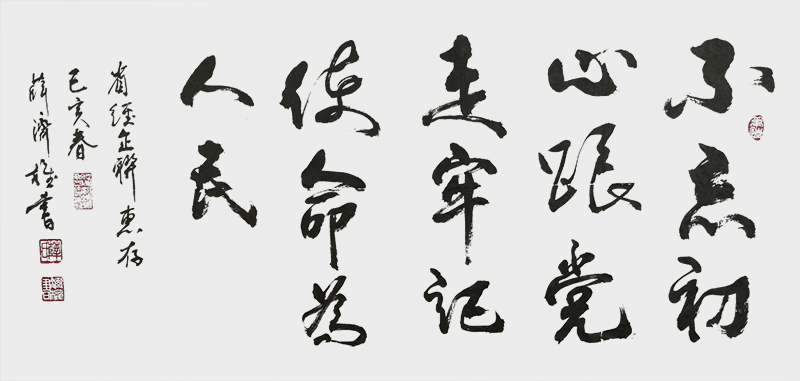 不忘初
心跟党
走牢记
使命为
人民
省经企联惠存
己亥春
薛济雄书